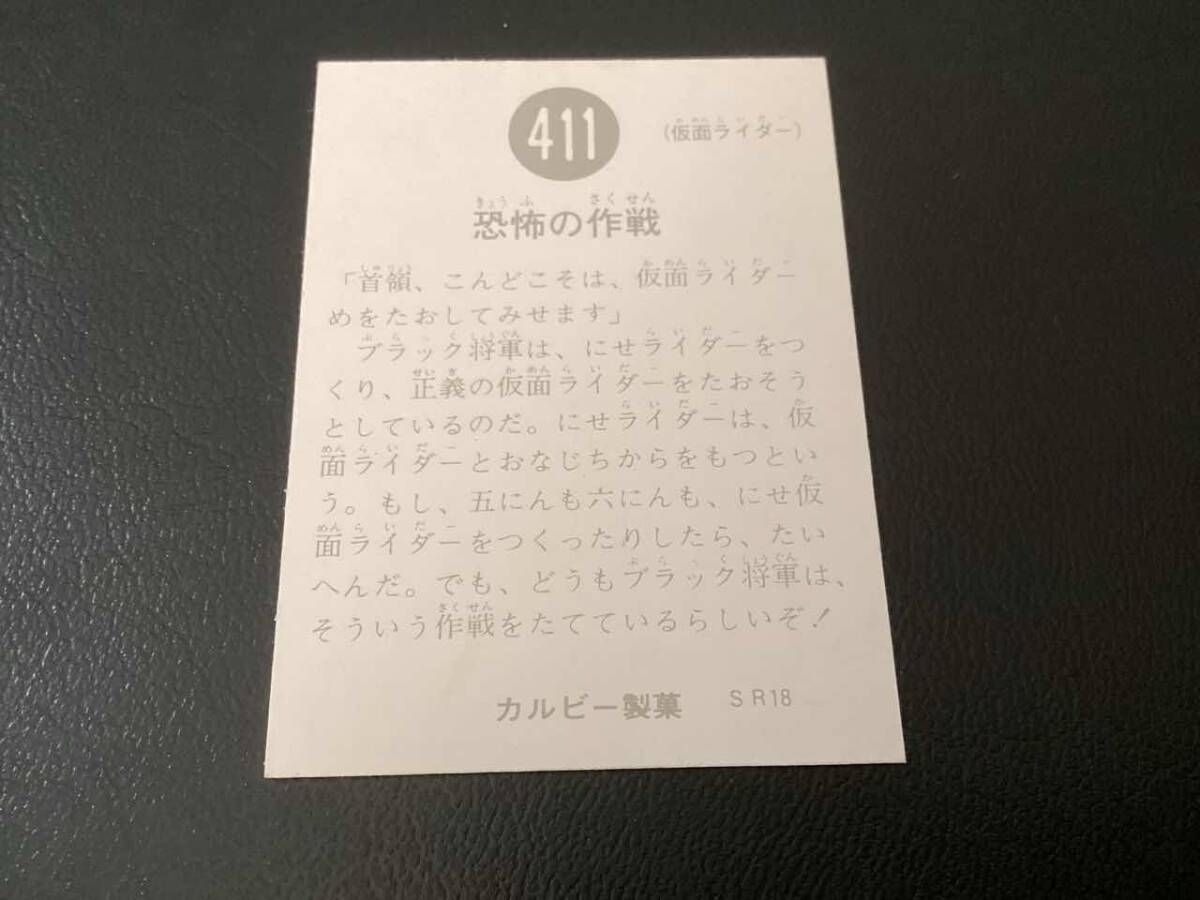 411
(仮面ライダー)
恐怖の作戦
「首領、こんどこそは、仮面ライダー
めをたおしてみせます」
ブラック将軍は、にせライダーをつ
くり、正義の仮面ライダーをたおそう
としているのだ。にせライダーは、仮
面ライダーとおなじちからをもつとい
う。もし、五にんも六にんも、にせ仮
面ライダーをつくったりしたら、たい
へんだ。でも、どうもブラック将軍は、
そういう作戦をたてているらしいぞ!
カルビー製菓 SR18